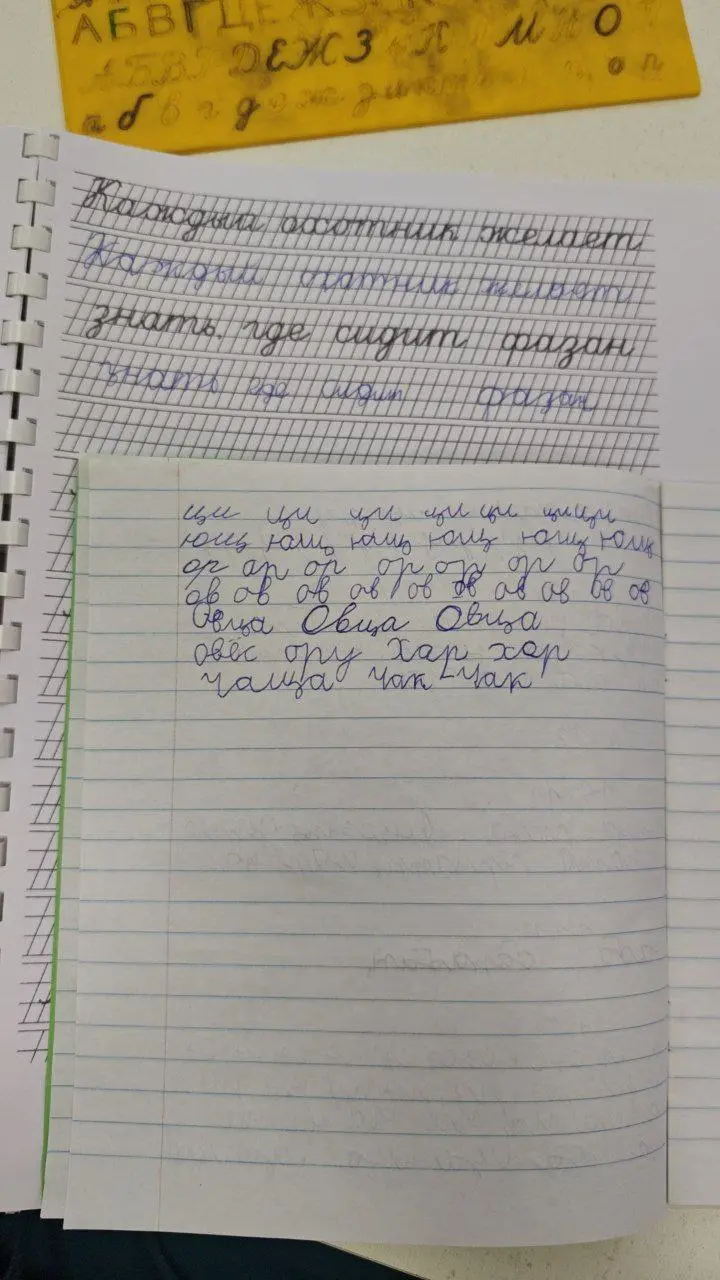 АБВГДЕЖЗ
ДЕЖЗ К М О
а б в г д е ж з и к о п
Каждый охотник желает
Каждый охотник желает
знать, где сидит фазан
знать где сидит фазан
ци ци ци ци ци ци ци
ющ ющ ющ ющ ющ ющ
ор ор ор ор ор ор ор
ов ов ов ов ов ов ов ов ов ов
Овца Овца Овца
овёс ору хар хор
чаща чак-чак